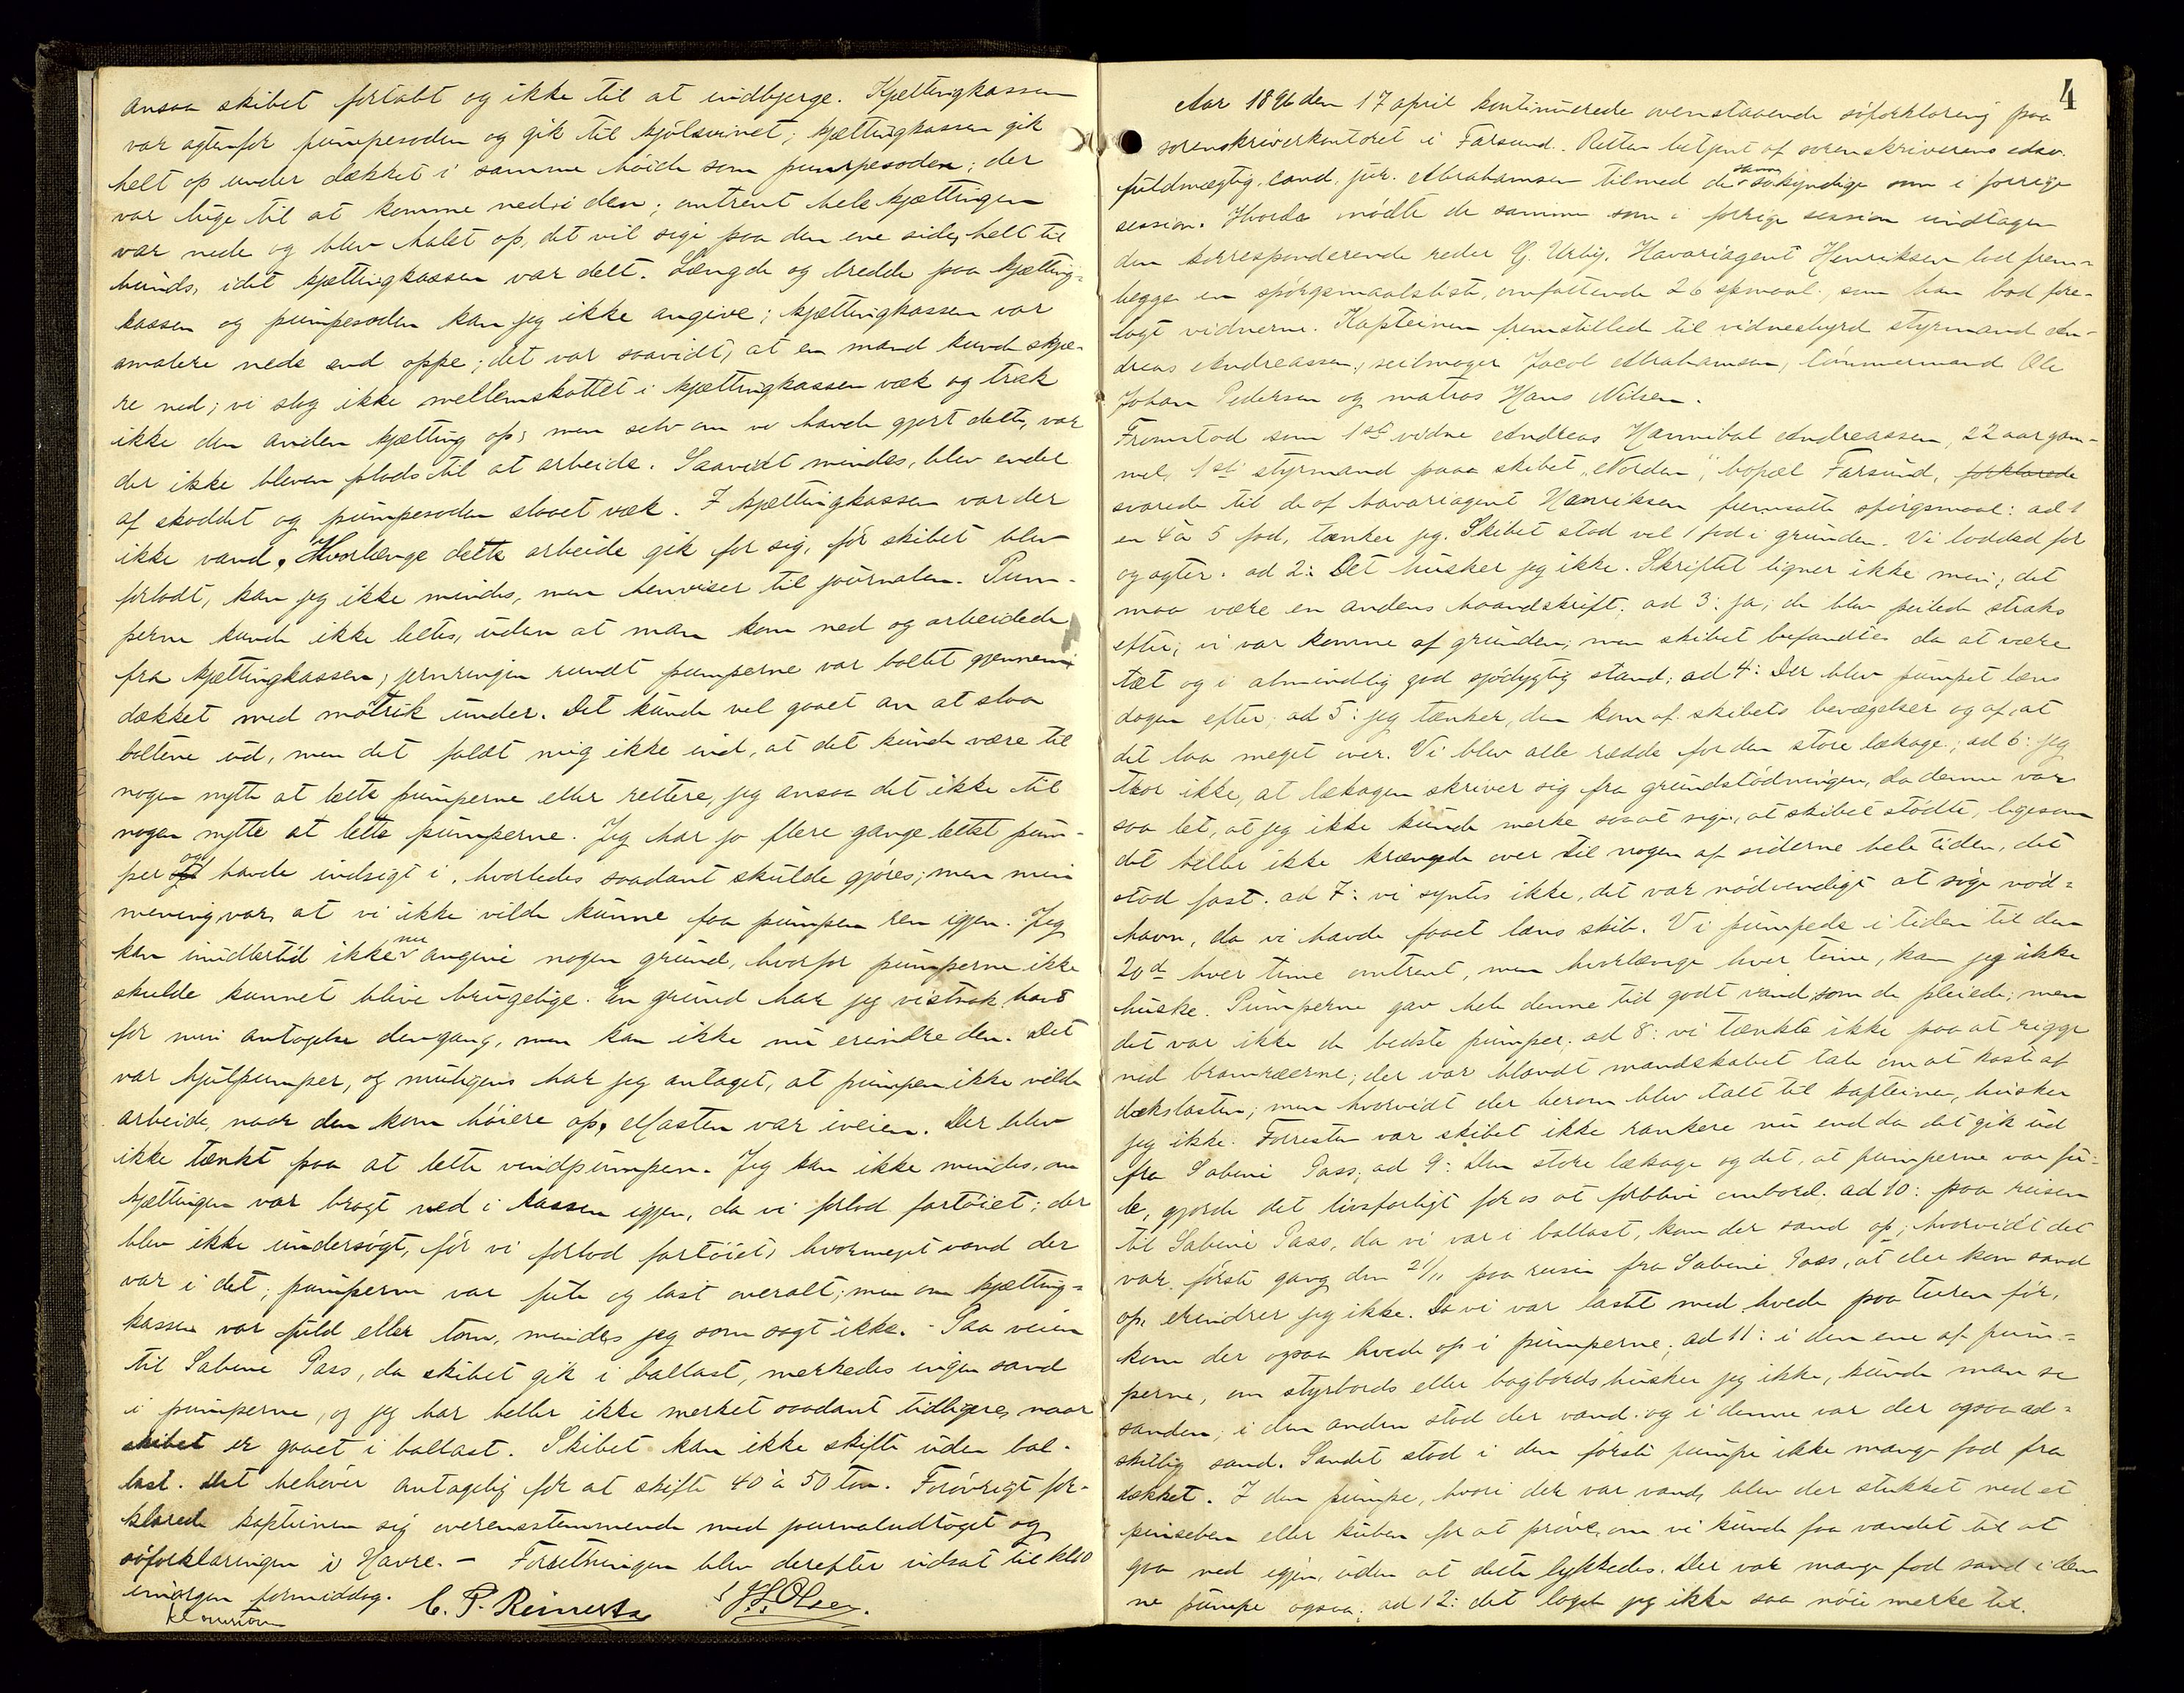 ansaa skibet fortabt og ikke til at indbjerge. Kjettingkassen
var agtenfor pumpesoden og gik til kjölsvinet; kjættingkassen gik
helt op under dækket i samme höide som pumpesoden; der
var luge til at komme ned i den; omtrent hele kjættingen
var nede og blev halet op, det vil sige paa den ene side, helt til
bunds, idet kjættingkassen var delt. Længde og bredde paa kjætting-
kassen og pumpesoden kan jeg ikke angive; kjættingkassen var
smalere nede end oppe; det var saavidt, at en mand kunde skjæ-
re ned; vi slog ikke mellemskottet i kjættingkassen væk og trak
ikke den anden kjætting op; men selv om vi havde gjort dette, var
der ikke bleven plads til at arbeide. Saavidt mindes, blev endel
af skoddet og pumpesoden slaaet væk. I kjættingkassen var der
ikke vand. Hvorlænge dette arbeide gik for sig, för skibet blev
forladt, kan jeg ikke mindes, men henviser til journalen. Pum-
perne kunde ikke lettes, uden at man kom ned og arbeidede
fra kjættingkassen; jernringen rundt pumperne var boltet gjennem
dækket med møtrik under. Det kunde vel gaaet an at slaa
boltene ud, men det faldt mig ikke ind, at det kunde være til
nogen nytte at lette pumperne eller rettere, jeg ansaa det ikke til
nogen nytte at lette pumperne. Jeg har jo flere gange lettet pum-
per og havde indsigt i, hvorledes saadant skulde gjöres; men min
mening var, at vi ikke vilde kunne faa pumpen ren igjen. Jeg
kan imidlertid ikke nu angive nogen grund, hvorfor pumperne ikke
skulde kunnet blive brugelige. En grund har jeg vistnok havt
for min antagelse dengang, men kan ikke nu erindre den. Det
var hjulpumper, og muligens har jeg antaget, at pumpen ikke vilde
arbeide, naar den kom höiere op. Masten var iveien. Der blev
ikke tænkt paa at lette vindpumpen. Jeg kan ikke mindes, om
kjættingen var bragt ned i kassen igjen, da vi forlod fartöiet; der
blev ikke undersögt, för vi forlod fartöiet, hvormeget vand der
var i det; pumperne var fulle og last overalt; men om kjætting-
kassen var fuld eller tom, mindes jeg som sagt ikke. - Paa veien
til Sabine Pass, da skibet gik i ballast, merkedes ingen sand
i pumperne, og jeg har heller ikke merket saadant tidligere, naar
skibet er gaaet i ballast. Skibet kan ikke skifte uden bal-
last. Det behöver antagelig for at skifte 40 à 50 ton. Forövrigt for-
klarede kapteinen sig overensstemmende med journaludtoget og
söforklaringen i Havre. - Forretningen blev derefter udsat til kl 10
imorgen formiddag. C. P. Reinertz J. L. Olsen.
4
Aar 1896 den 17 april kontinuerede ovenstaaende söforklaring paa
sorenskriverkontoret i Farsund. Retten betjent af sorenskriverens edsv.
fuldmægtig, cand. jur. Abrahamsen tilmed de samme sökyndige som i forrige
session. Hvorda mödte de samme som i forrige session undtagen
den korresponderende reder G. Urby. Havariagent Henriksen lod frem-
lægge en spörgsmaalsliste, omfattende 26 spmaal. som han bad fore-
lagt vidnerne. Kapteinen fremstilled til vidnesbyrd styrmand An-
dreas Andreassen, seilmager Jacob Abrahamsen, tömmermand Ole
Johan Pedersen og matros Hans Nilsen.
Fremstod som 1ste vidne Andreas Hannibal Andreassen, 22 aar gam-
mel, 1ste styrmand paa skibet "Norden", bopæl Farsund, forklarede
svarede til de af havariagent Henriksen fremsatte spörgsmaal: ad 1
en 4 à 5 fod, tænker jeg. Skibet stod vel 1 fod i grunden. Vi loddede for
og agter. ad 2: Det husker jeg ikke. Skriftet ligner ikke min; det
maa være en andens haandskrift. ad 3: ja; de blev peilede straks
efter, vi var komne af grunden; men skibet befandtes da at være
tæt og i almindelig god sjödygtig stand; ad 4: Der blev pumpet læns
dagen efter; ad 5: jeg tænker, den kom af skibets bevægelser og af, at
det laa meget over. Vi blev alle rædde for den store lækage; ad 6: jeg
tror ikke, at lækagen skriver sig fra grundstödningen, da denne var
saa let, at jeg ikke kunde merke saaat sige, at skibet stödte, ligesom
det heller ikke krængede over til nogen af siderne hele tiden, det
stod fast. ad 7: vi syntes ikke, det var nödvendigt at söge nöd-
havn, da vi havde faaet læns skib. Vi pumpede i tiden til den
20de hver time omtrent, men hvorlænge hver time, kan jeg ikke
huske. Pumperne gav hele denne tid godt vand, som de pleiede; men
det var ikke de bedste pumper. ad 8: vi tænkte ikke paa at rigge
ned bramræerne; der var blandt mandskabet tale om at kaste af
dækslasten; men hvorvidt der herom blev talt til kapteinen, husker
jeg ikke. Forresten var skibet ikke rankere nu end da det gik ud
fra Sabine Pass; ad 9: Den store lækage og det, at pumperne var ful-
le, gjorde det livsfarligt for os at forblive ombord. ad 10: paa reisen
til Sabine Pass, da vi var i ballast, kom der sand op; hvorvidt det
var förste gang den 21/11 paa reisen fra Sabine Pass, at der kom sand
op, erindrer jeg ikke. Da vi var lastet med hvede paa turen för,
kom der ogsaa hvede op i pumperne; ad 11: i den ene af pum-
perne, om styrbords eller bagbords husker jeg ikke, kunde man se
sanden; i den anden stod der vand og i denne var der ogsaa ad-
skillig sand. Sandet stod i den förste pumpe ikke mange fod fra
dækket. I den pumpe, hvori der var vand, blev der stukket ned et
pinseben eller kuben for at pröve, om vi kunde faa vandet til at
gaa ned igjen, uden at dette lykkedes. Der var mange fod sand i den-
ne pumpe ogsaa; ad 12: det laget jeg ikke saa nöie merke til.